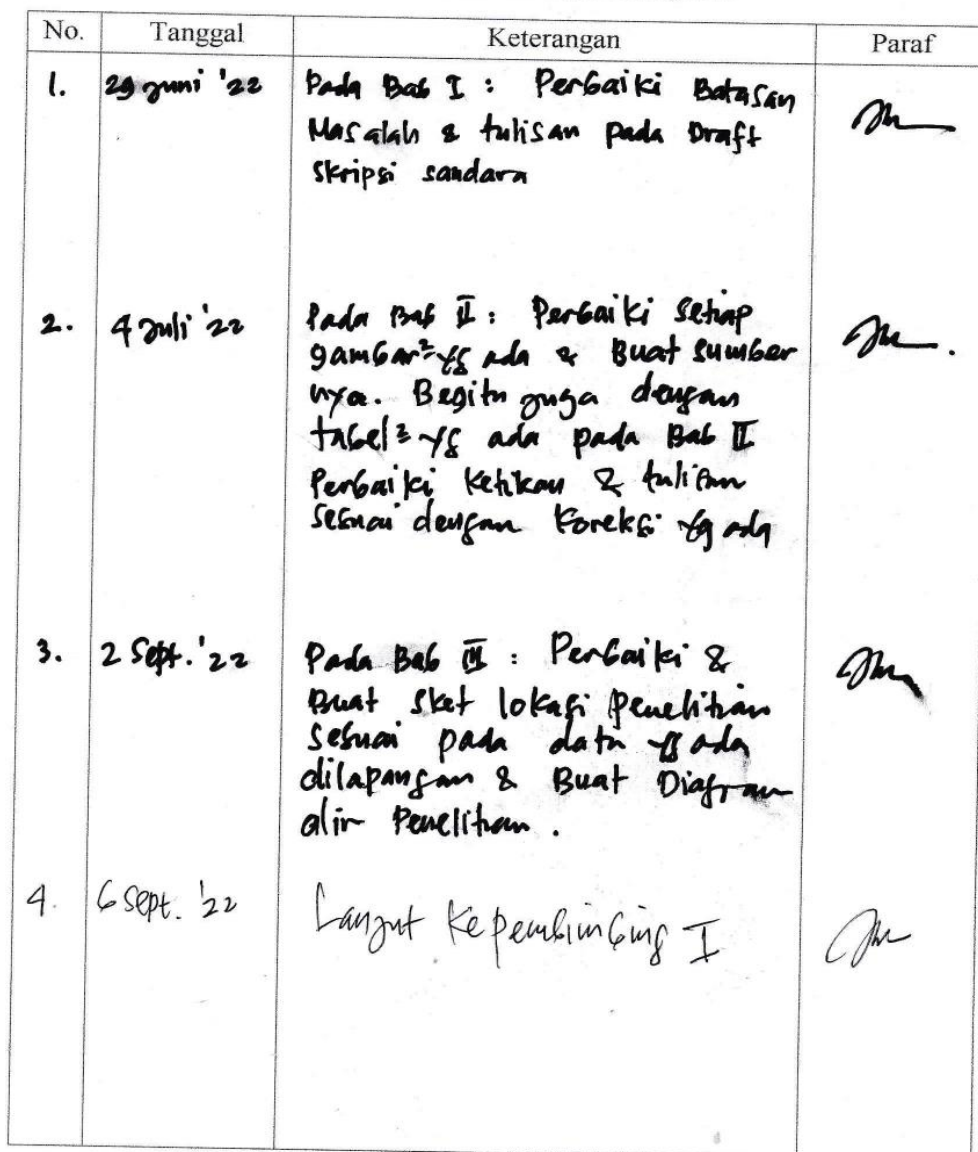 No. Tanggal Keterangan Paraf
1. 29 Juni '22 Pada Bab I : Perbaiki Batasan
Masalah & tulisan pada Draft
Skripsi saudara
2. 4 Juli '22 Pada Bab II : Perbaiki setiap
gambar² yg ada & Buat sumber
nya. Begitu juga dengan
tabel² yg ada pada Bab II
Perbaiki Ketikan & tulisan
sesuai dengan Koreksi yg ada
3. 2 Sept. '22 Pada Bab III : Perbaiki &
Buat Sket lokasi Penelitian
sesuai pada data yg ada
dilapangan & Buat Diagram
alir Penelitian .
4. 6 Sept. '22 Lanjut Ke pembimbing I